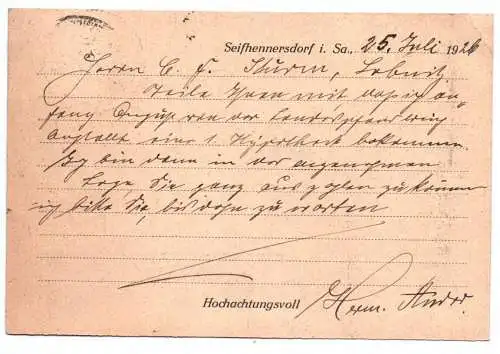 Seifhennersdorf i. Sa., 25. Juli 1926
Herrn C. F. Sturm, Lobnitz
Teile Ihnen mit das ich an-
fang August von der Landes
Anstalt eine 1. Hypothek bekomme.
Ich bin dann in der angenehmen
Lage Sie ganz aus zahlen zu können
ich bitte Sie, bis dahin zu warten
Hochachtungsvoll
Herm.